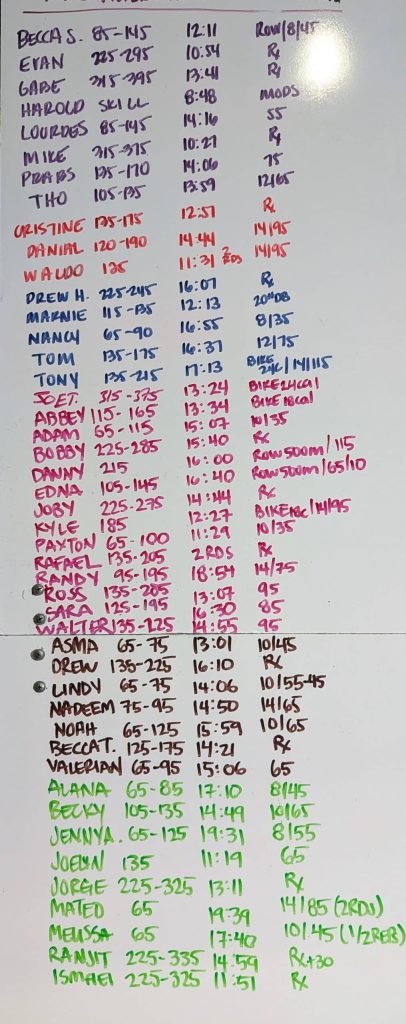 BECCA S. 85-145 12:11 ROW/8/45
EVAN 225-295 10:54 Rx
GABE 315-395 13:41 Rx
HAROLD SKILL 8:48 MODS
LOURDES 85-145 14:16 55
MIKE 315-375 10:27 Rx
PRABS 135-170 14:06 75
THO 105-135 13:59 12/65
CRISTINE 135-175 12:57 Rx
DANIAL 120-190 14:44 14/95
WALDO 135 11:31 2 RDS 14/95
DREW H. 225-245 16:07 Rx
MARNIE 115-135 12:13 20# DB
NANCY 65-90 16:55 8/35
TOM 135-175 16:37 12/75
TONY 135-215 17:13 BIKE 24C/14/115
JOE T. 315-375 13:24 BIKE 24 cal
ABBEY 115-165 13:34 BIKE 18 cal
ADAM 65-115 15:07 10/35
BOBBY 225-285 15:40 Rx
DANNY 215 16:00 ROW 500m/115
EDNA 105-145 16:40 ROW 500m/65/10
JOBY 225-275 14:44 Rx
KYLE 185 12:27 BIKE 18c/14/95
PAXTON 65-100 11:29 10/35
RAFAEL 135-205 2 RDS Rx
RANDY 95-195 18:54 14/75
ROSS 135-205 13:07 95
SARA 125-195 16:30 85
WALTER 135-225 14:55 95
ASMA 65-75 13:01 10/45
DREW 135-225 16:10 Rx
LINDY 65-75 14:06 10/55-45
NADEEM 75-95 14:50 14/65
NOAH 65-125 15:59 10/65
BECCA T. 125-175 14:21 Rx
VALERIAN 65-95 15:06 65
ALANA 65-85 17:10 8/45
BECKY 105-135 14:49 10/65
JENNYA. 65-125 19:31 8/55
JOELYN 135 11:19 65
JORGE 225-325 13:11 Rx
MATEO 65 19:39 14/85 (2RDS)
MELISSA 65 17:40 10/45 (1/2 REB)
RANJIT 225-335 14:59 Rx+30
ISMAEL 225-325 11:51 Rx